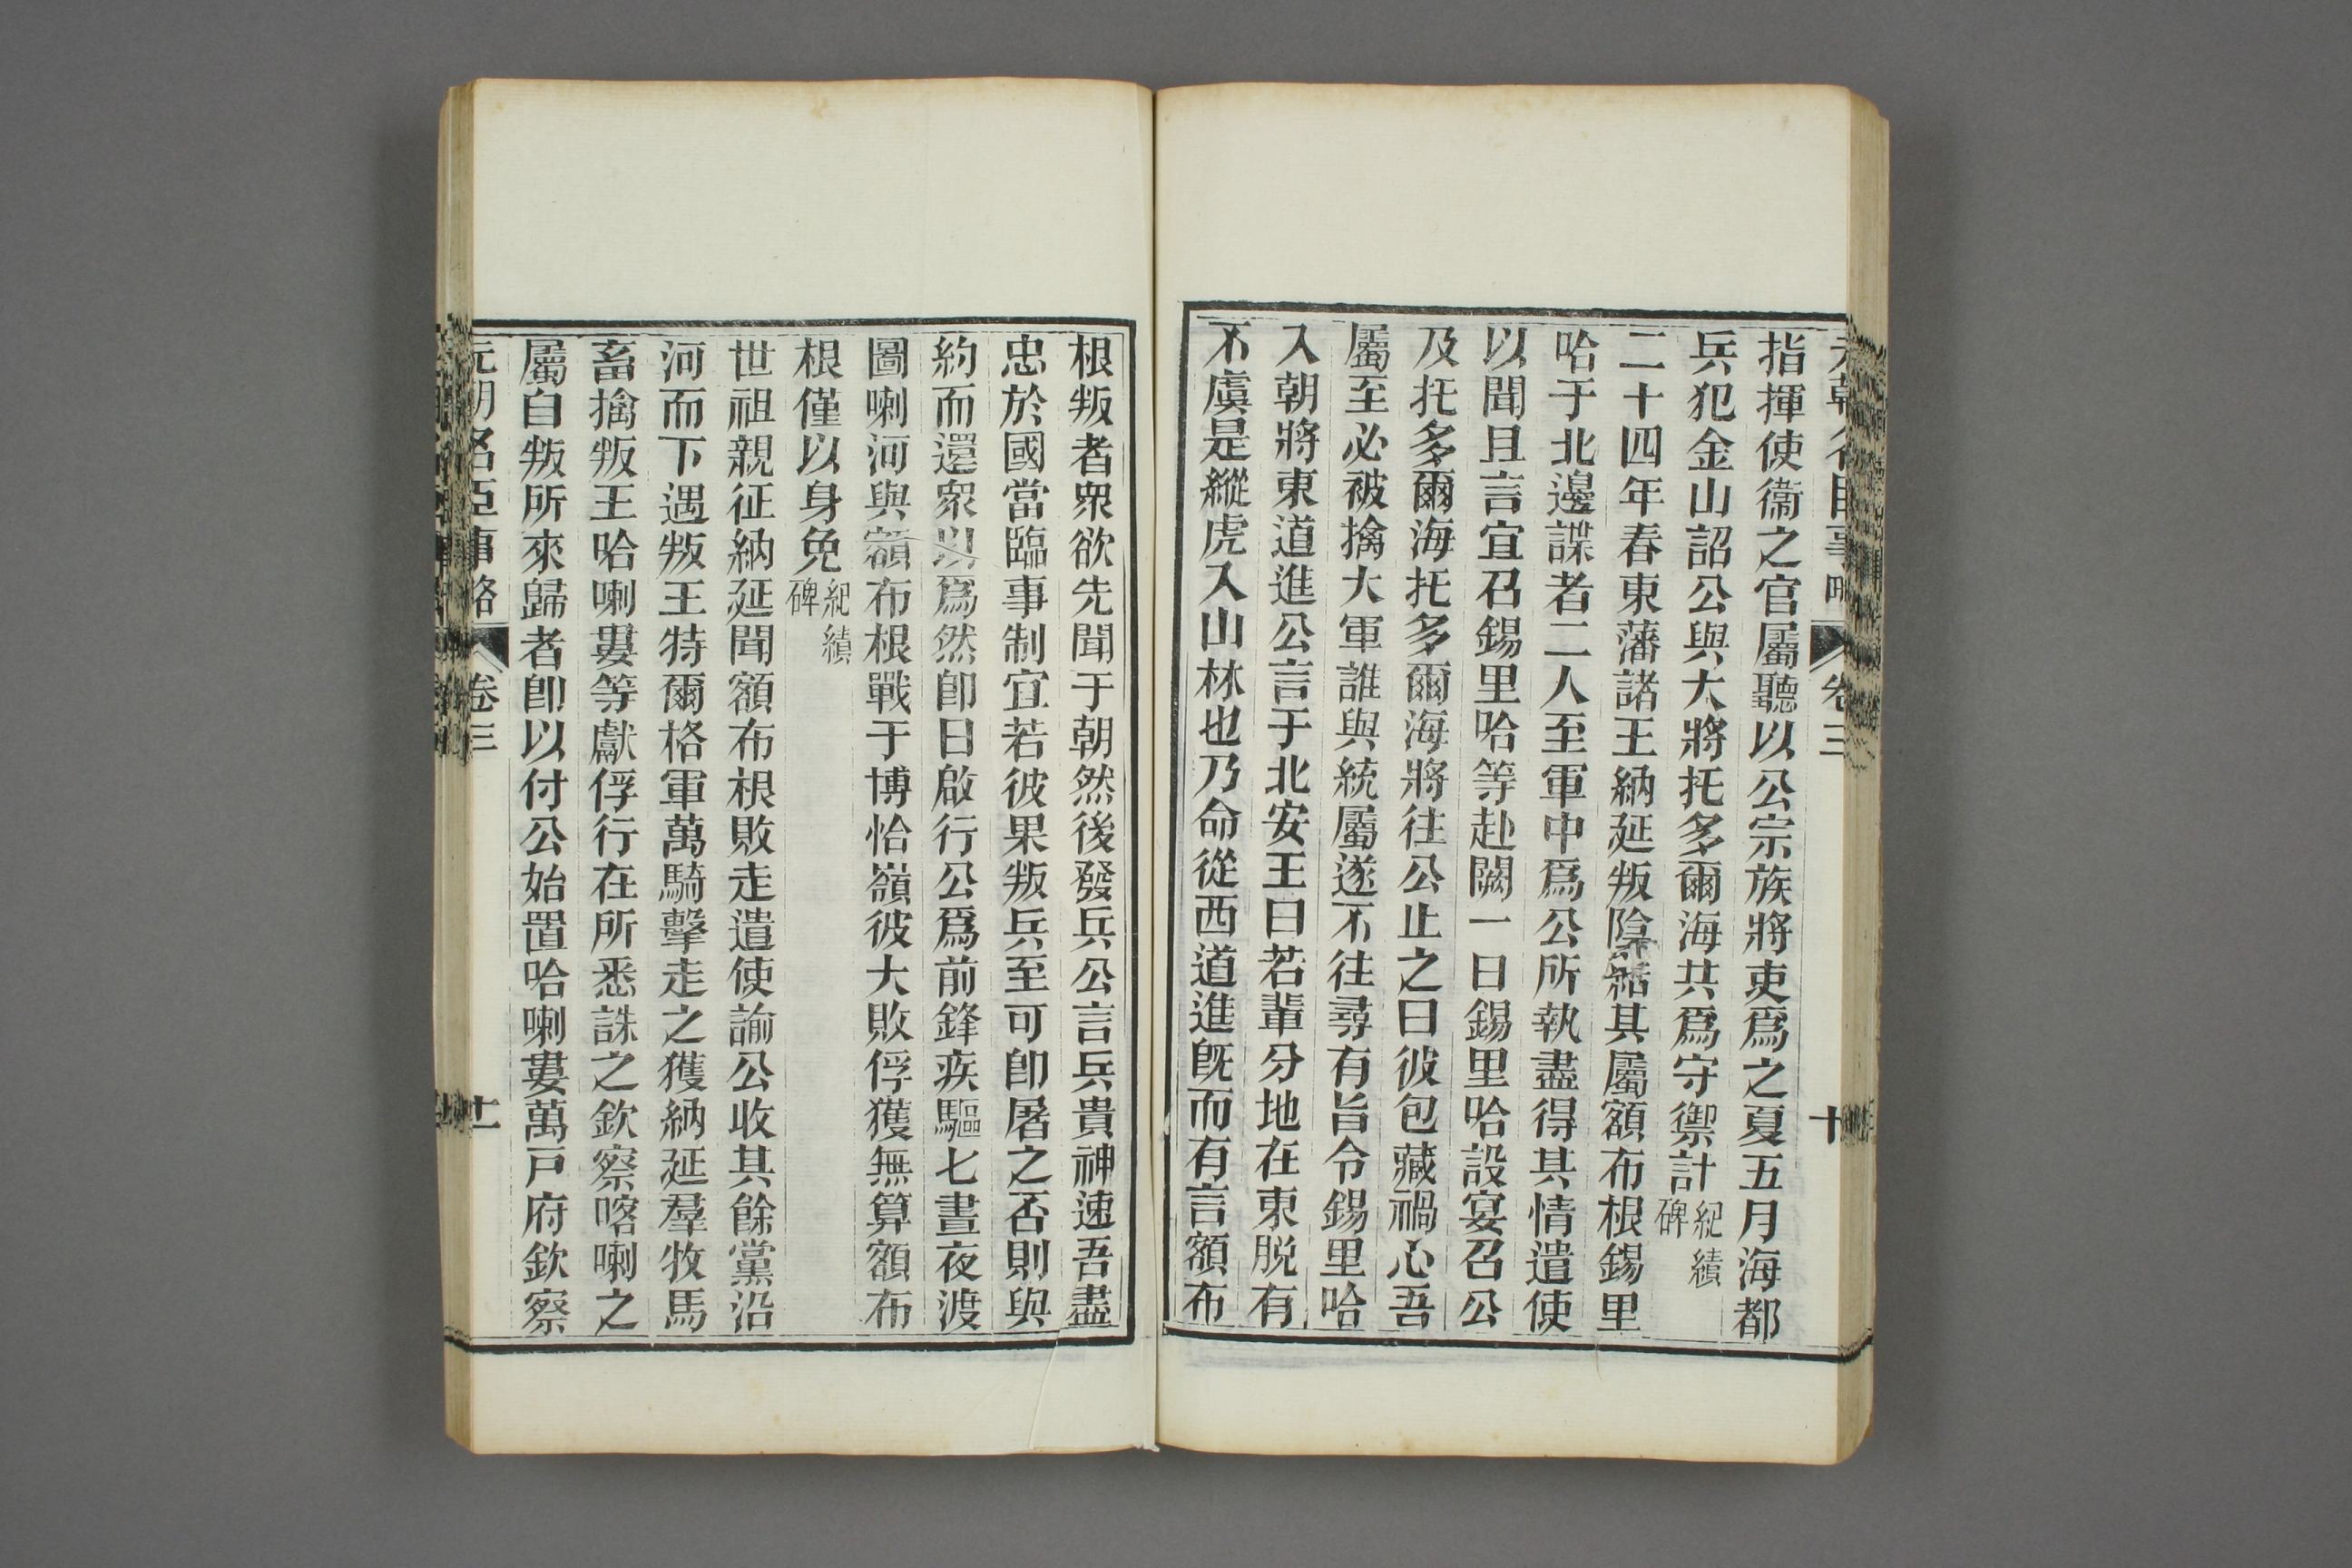 元朝名臣事略 卷三 十
指揮使衞之官屬聽以公宗族將吏爲之夏五月海都
兵犯金山詔公與大將托多爾海共爲守禦計紀績碑
二十四年春東藩諸王納延叛陰結其屬額布根錫里
哈于北邊諜者二人至軍中爲公所執盡得其情遣使
以聞且言宜召錫里哈等赴闕一日錫里哈設宴召公
及托多爾海托多爾海將往公止之曰彼包藏禍心吾
屬至必被擒大軍誰與統屬遂不往尋有旨令錫里哈
入朝將東道進公言于北安王曰若輩分地在東脫有
不虞是縱虎入山林也乃命從西道進旣而有言額布
根叛者衆欲先聞于朝然後發兵公言兵貴神速吾盡
忠於國當臨事制宜若彼果叛兵至可卽屠之否則與
約而還衆以爲然卽日啟行公爲前鋒疾驅七晝夜渡
圖喇河與額布根戰于博恰嶺彼大敗俘獲無算額布
根僅以身免紀績碑
世祖親征納延聞額布根敗走遣使諭公收其餘黨沿
河而下遇叛王特爾格軍萬騎擊走之獲納延羣牧馬
畜擒叛王哈喇婁等獻俘行在所悉誅之欽察喀喇之
屬自叛所來歸者卽以付公始置哈喇婁萬戸府欽察
元朝名臣事略 卷三 十一